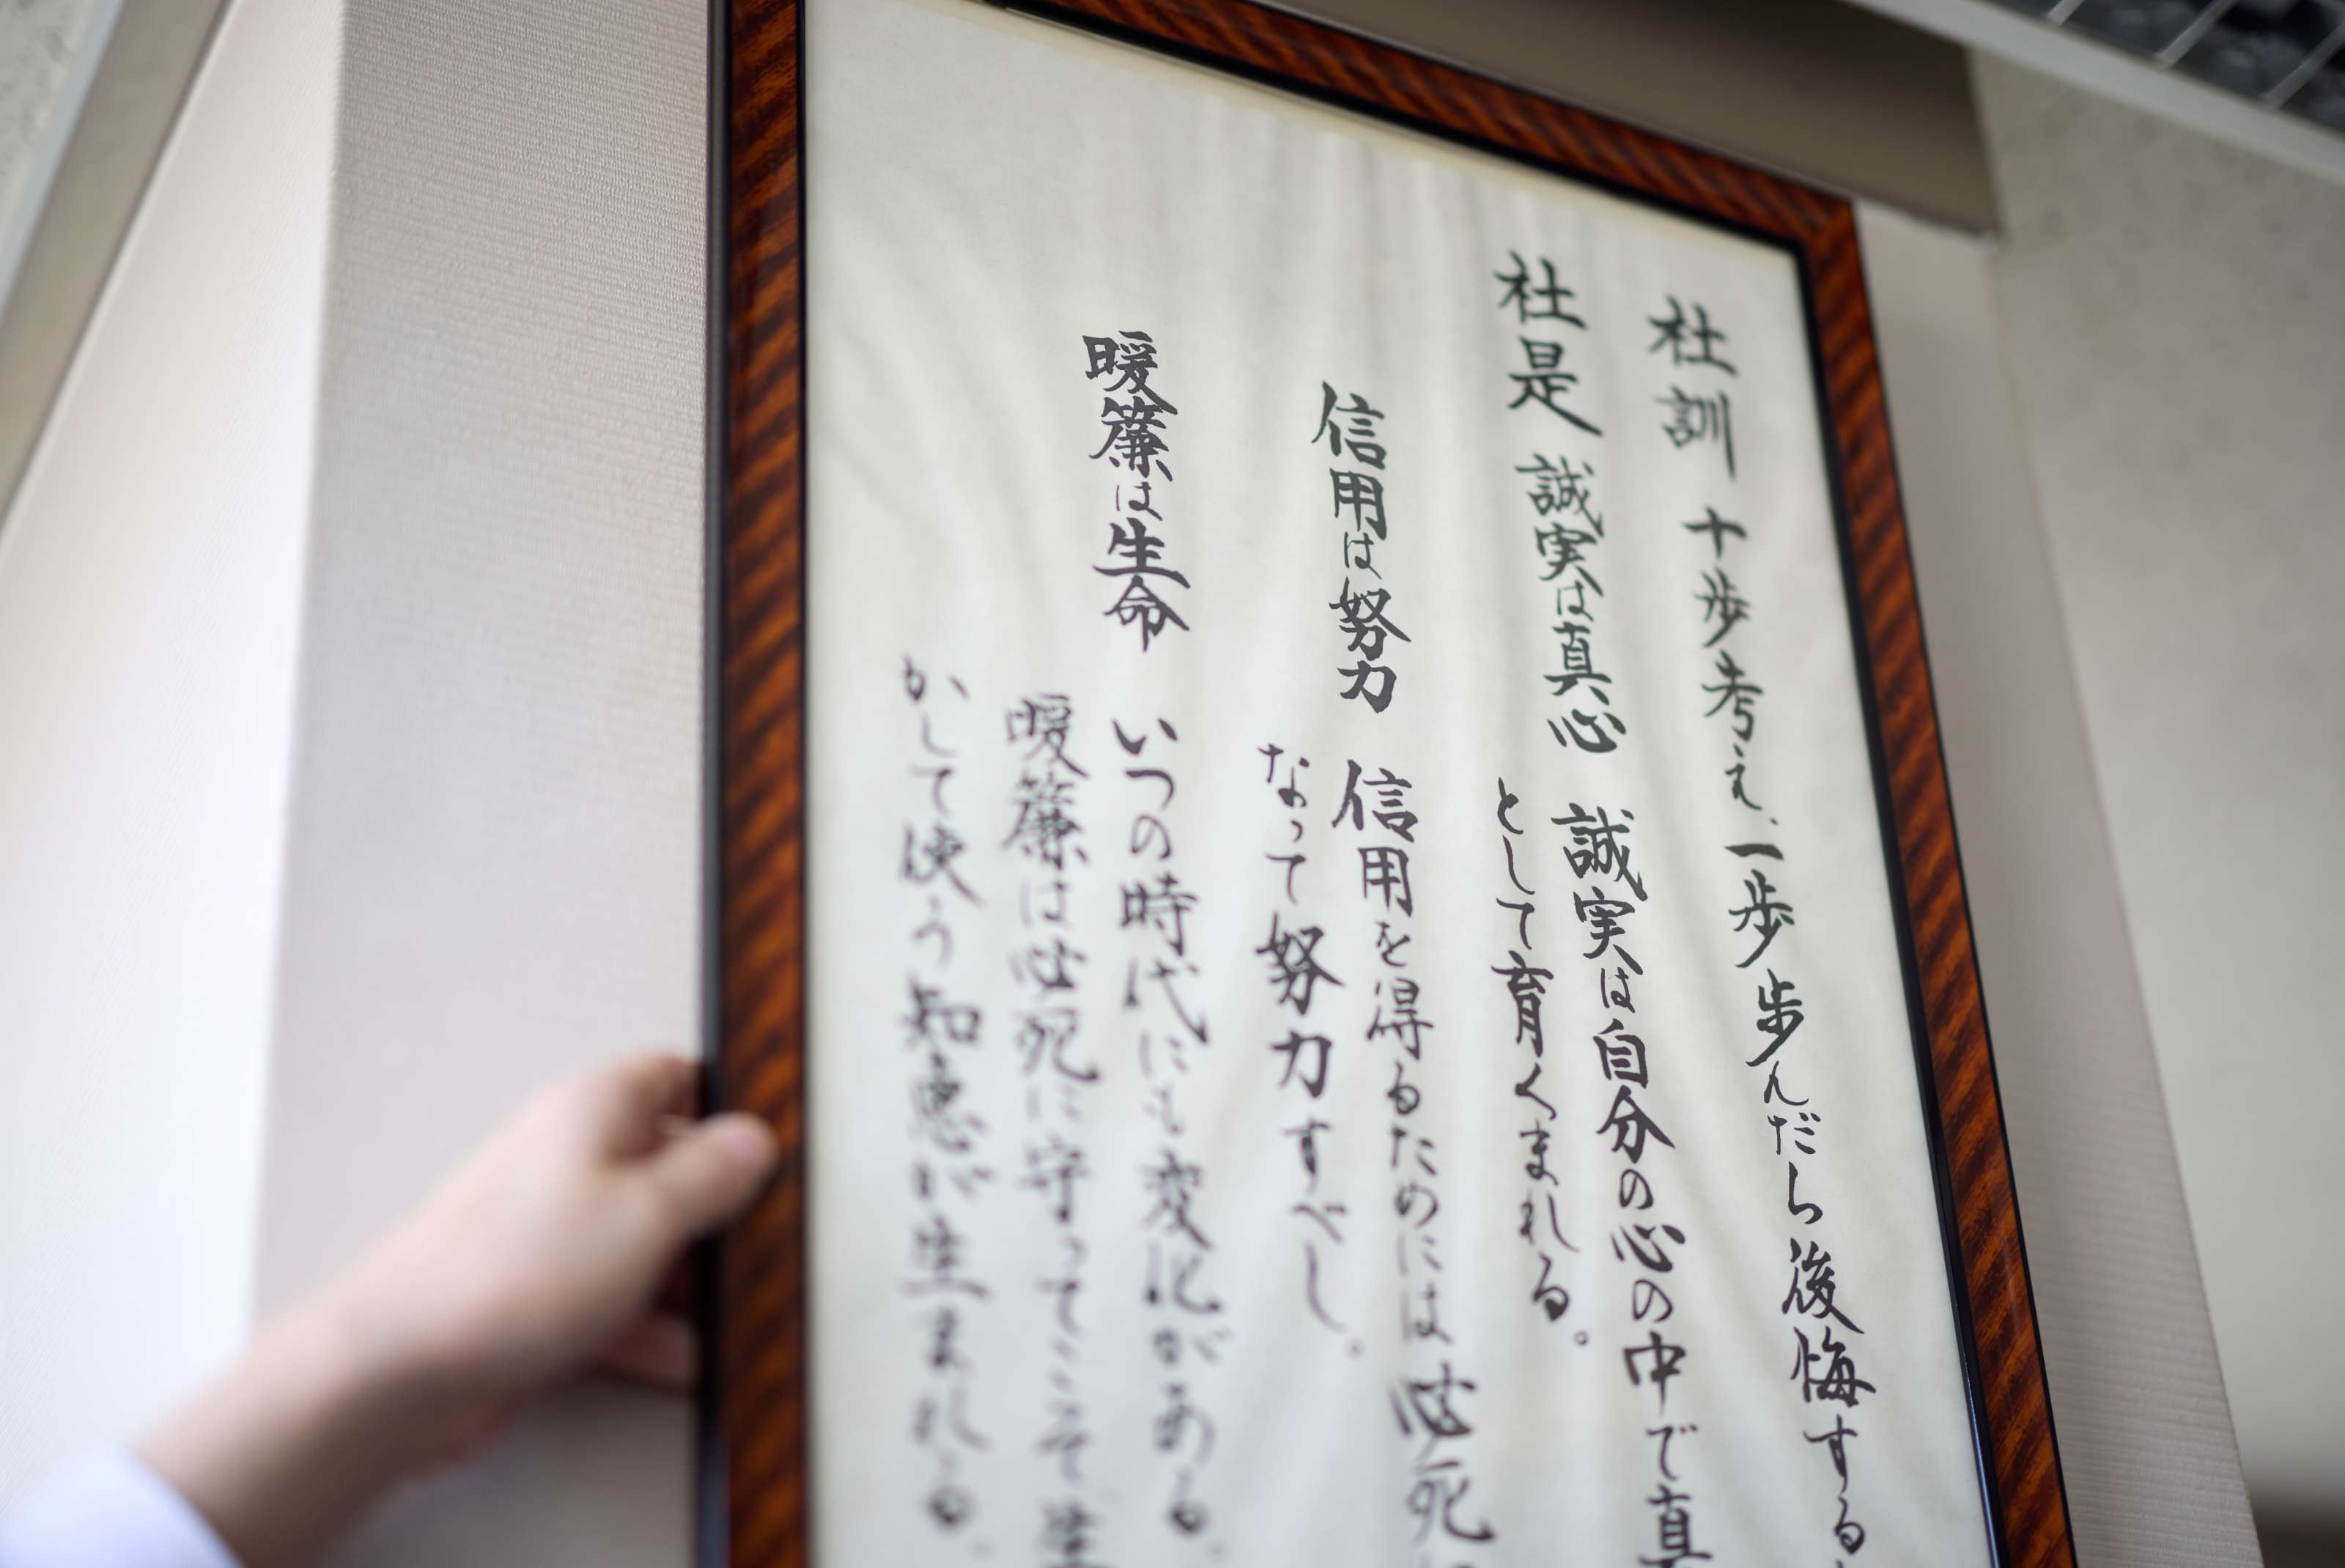 社訓 十歩考え、一歩歩んだら後悔する
社是 誠実は真心 誠実は自分の心の中で真
として育くまれる。
信用は努力 信用を得るためには必死
なって努力すべし。
暖簾は生命 いつの時代にも変化がある。
暖簾は必死に守ってこそ生
かして使う知恵が生まれる。